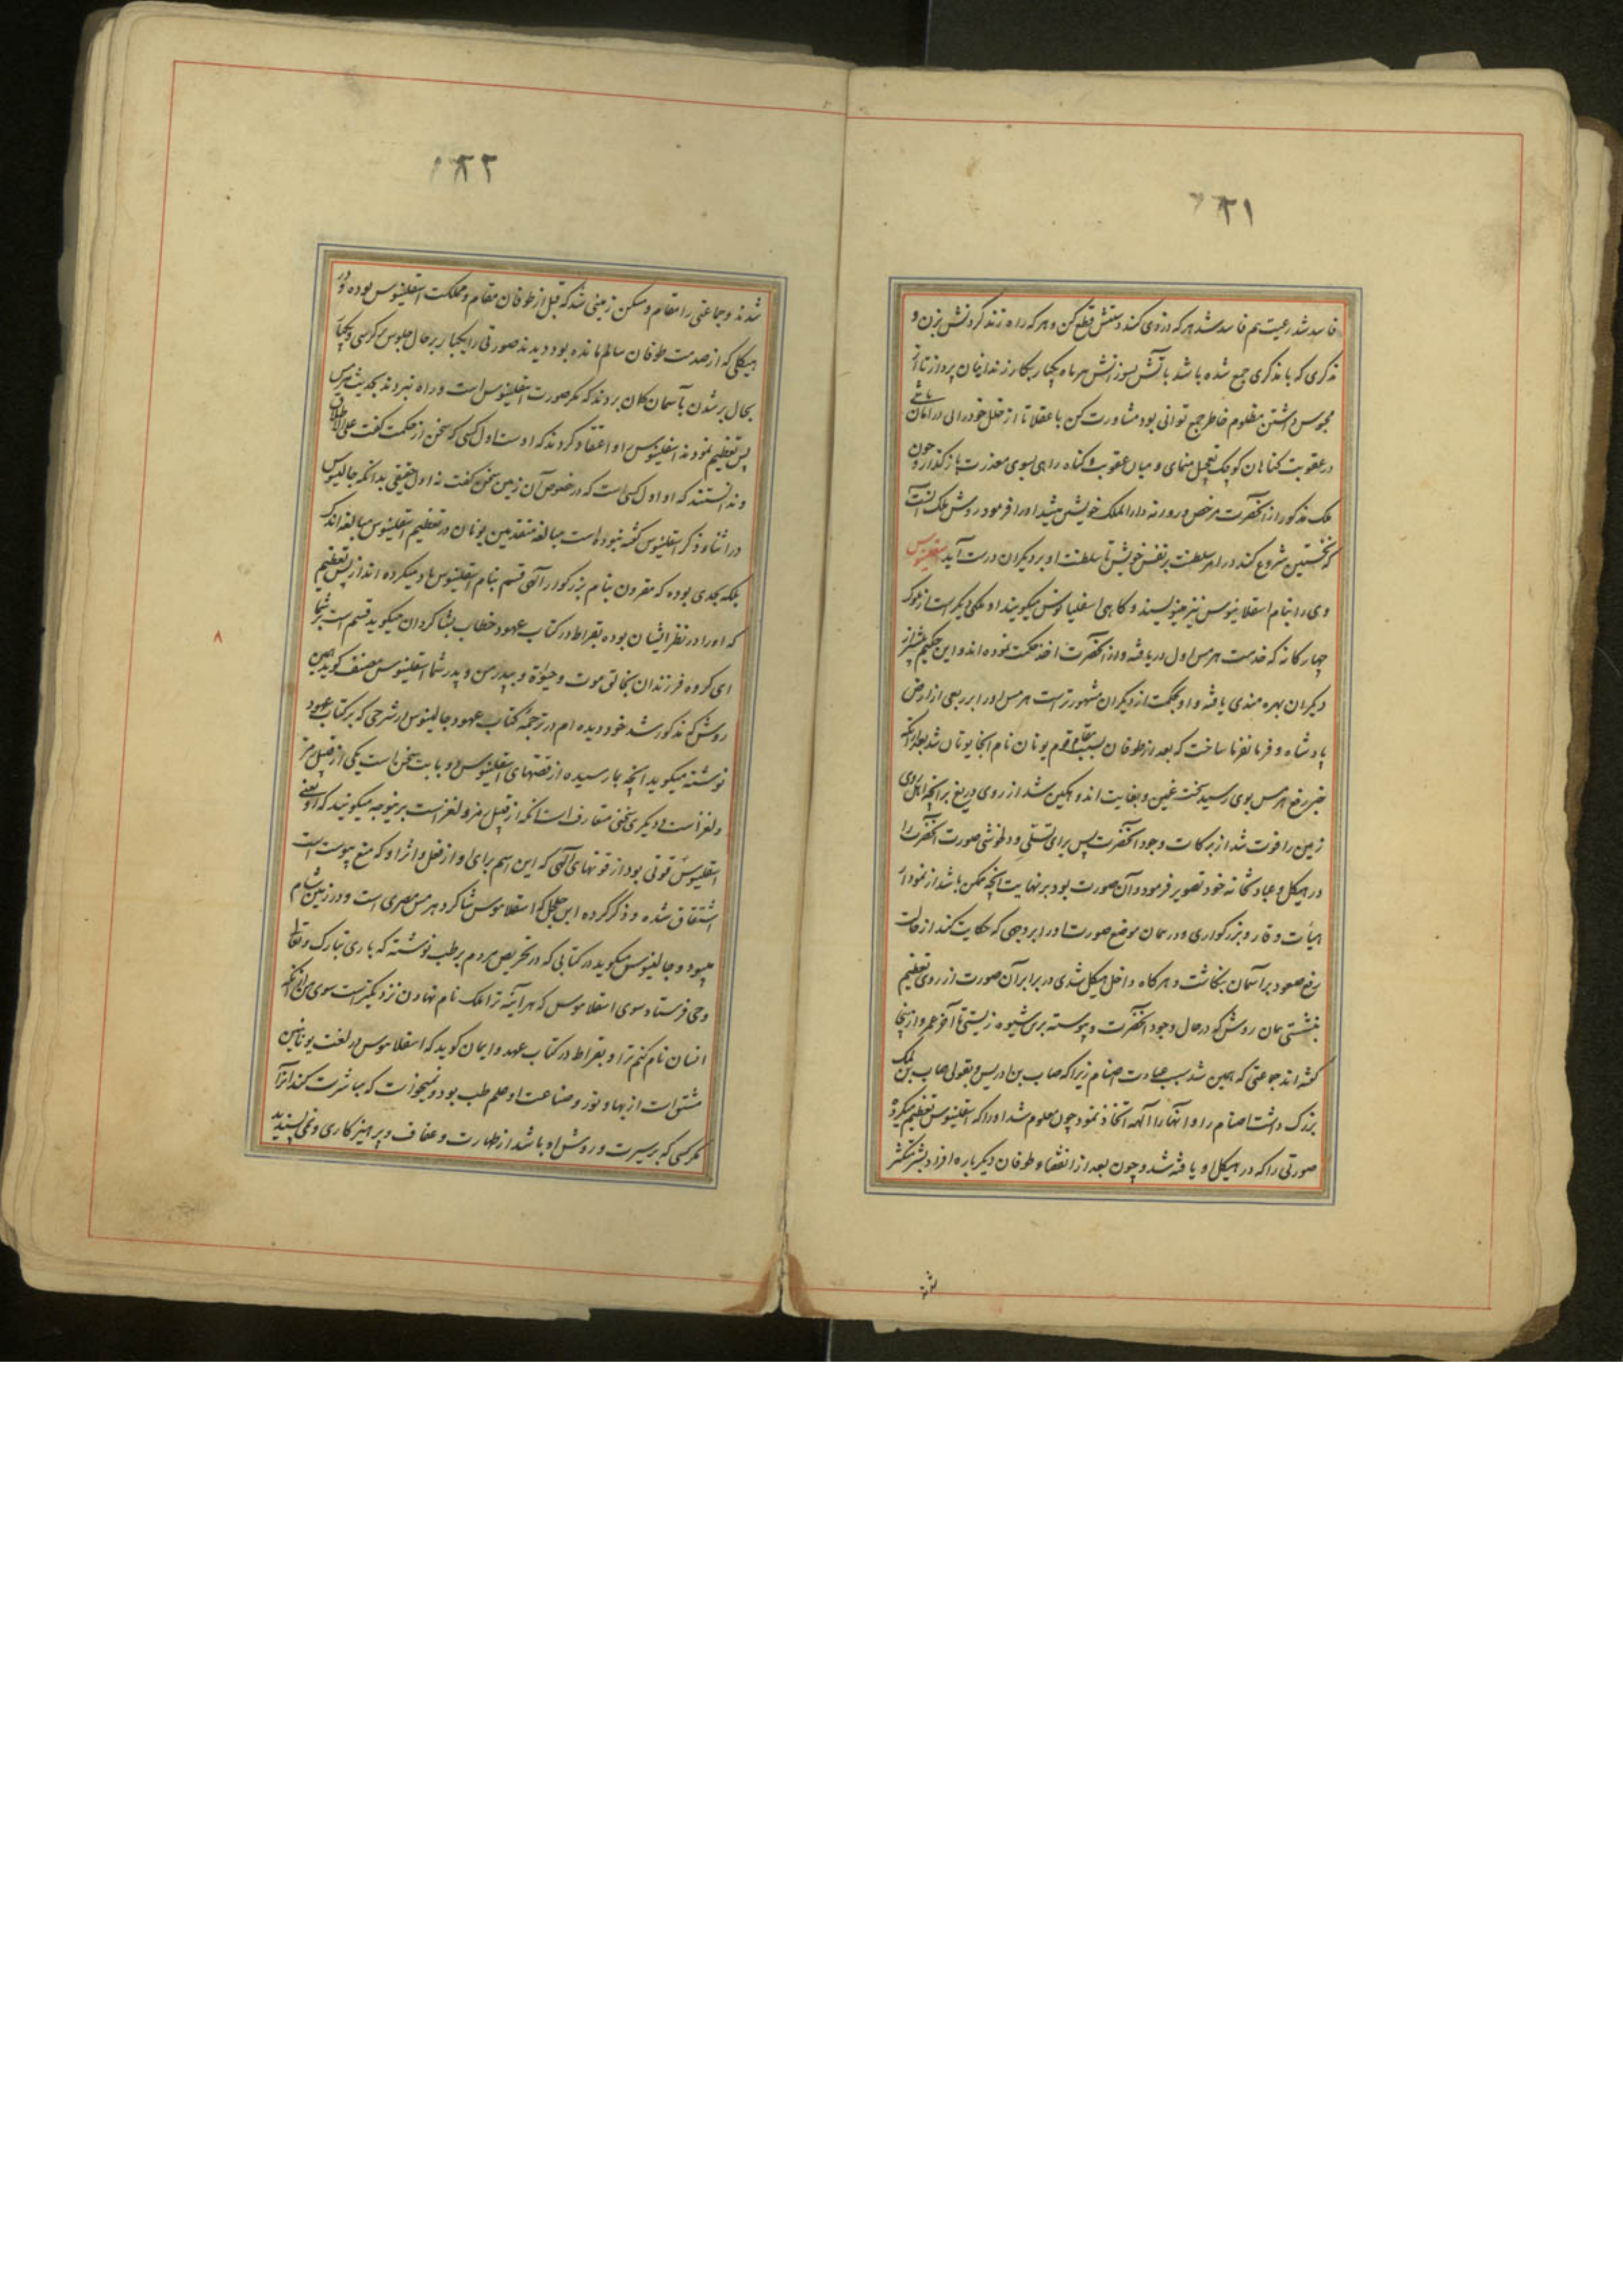 ۲۲۱
فاسد شد رعیت هم فاسد شد هر که دزدی کند دستش قطع کن و هر که راه زند گردنش بزن و
مذکری که با مذکری جمع شده باشد بآتش بسوزانش هر ماه یکبار بکار زندانیان پرداز تا از
محبوس داشتن مظلوم خاطر جمع توانی بود مشاورت کن با عقلا تا از خلل خودرایی در امان باشی
در عقوبت گناهان کوچک تعجیل منمای و میان عقوبت و گناه راهی بسوی معذرت بازگذار و چون
ملک مذکور از آنحضرت مرخص و روانه دارالملک خویش میشد او را فرمود روش ملک آنست
که نخستین شروع کند در امر سلطنت بر نفس خویش تا سلطنت او بر دیگران درست آید اسقلینوس
وی را بنام اسقلانیوس نیز مینویسند و گاهی اسقلپیادوش میگویند او ملکی دیگر است از ملوک
چهارگانه که خدمت هرمس اول دریافته و از آنحضرت اخذ حکمت نموده‌اند و این حکیم بیشتر از
دیگران بهره مندی یافته و او بحکمت از دیگران مشهورتر است هرمس او را بر ربعی از ارض
پادشاه و فرمانفرما ساخت که بعد از طوفان بسبب مقام قوم یونان نام آنجا یونان شد بعد از آنکه
خبر رفع هرمس بوی رسید سخت غمین و بغایت اندوهگین شد از روی دریغ بر آنچه اهل روی
زمین را فوت شد از برکات وجود آنحضرت پس برای تسلی و دلخوشی صورت آنحضرت را
در هیکل و عبادتخانه خود تصویر فرمود و آن صورت بود بر نهایت آنچه ممکن باشد از نمودار
هیأت وقار و بزرگواری و در همان موضع صورت او را بر وجهی که حکایت کند از حالت
رفع و صعود بر آسمان بنگاشت و هر گاه داخل هیکل شدی در برابر آن صورت از روی تعظیم
بنشستی بهمان روش که در حال وجود آنحضرت و پیوسته برین شیوه زیستی تا آخر عمر و از اینجا
گفته‌اند جماعتی که همین شد سبب عبادت اصنام زیرا که صاب بن ادریس و بقولی صاب بن ملک
بزرگ داشت اصنام را و آنها را آلهه اتخاذ نمود چون معلوم شد او را که اسقلینوس تعظیم میکرده
صورتی را که در هیکل او یافته شد و چون بعد از انقضاء طوفان دیگر باره افراد بشر متکثر
شد
۲۲۲
شدند و جماعتی را مقام و مسکن زمینی شد که قبل از طوفان مقام و مملکت اسقلینوس بوده و در
هیکلی که از صدمت طوفان سالم مانده بود دیدند صورتی را یکبار بر حال جلوس بر کرسی و یکبار
بحال بر شدن بآسمان گمان بردند که مگر صورت اسقلینوس است و راه نبردند بحدیث هرمس
پس تعظیم نمودند اسقلینوس را و اعتقاد کردند که اوست اول کسی که سخن از حکمت گفت علی الاطلاق
و ندانستند که او اول کسی است که در خصوص آن زمین سخن گفت نه اول حقیقی بدانکه جالینوس
در اثناء ذکر اسقلینوس گفته نبوده است مبالغه متقدمین یونان در تعظیم اسقلینوس مبالغه اندک
بلکه بحدی بوده که مقرون بنام بزرگوار الهی قسم بنام اسقلینوس یاد میکرده‌اند از بس تعظیم
که او را در نظر ایشان بوده بقراط در کتاب عهود خطاب بشاگردان میگوید قسم است شما را
ای گروه فرزندان بخالق موت و حیوة و بپدر من و پدر شما اسقلینوس مصنف گوید همین
روش که مذکور شد خود دیده‌ام در ترجمه کتاب عهود جالینوس در شرحی که بر کتاب عهود
نوشته میگوید آنچه بما رسیده از قصهای اسقلینوس دو بابت سخن است یکی از قبیل رمز
و لغز است و دیگری سخنی متعارف است آنکه از قبیل رمز و لغز است برینوجه میگویند که او یعنی
اسقلینوس قوتی بود از قوتهای الهی که این اسم برای او از فعل و اثر او که منع یبوست است
اشتقاق شده و ذکر کرده ابن جلجل که اسقلانیوس شاگرد هرمس مصری است و در زمین شام
میبود و جالینوس میگوید در کتابی که در تحریص مردم بر طب نوشته که باری تبارک و تعالی
وحی فرستاد سوی اسقلانیوس که هر آینه ترا ملک نام نهادن نزدیکتر است سوی من از آنکه
انسان نام کنم ترا و بقراط در کتاب عهد و ایمان گوید که اسقلانیوس در لغت یونانیین
مشتق است از بهاء و نور و صناعت او علم طب بود و تجویز نمی که مباشرت کند آنرا
مگر کسی که بر سیرت و روش او باشد از طهارت و عفاف و پرهیزکاری و نمی پسندید
۸